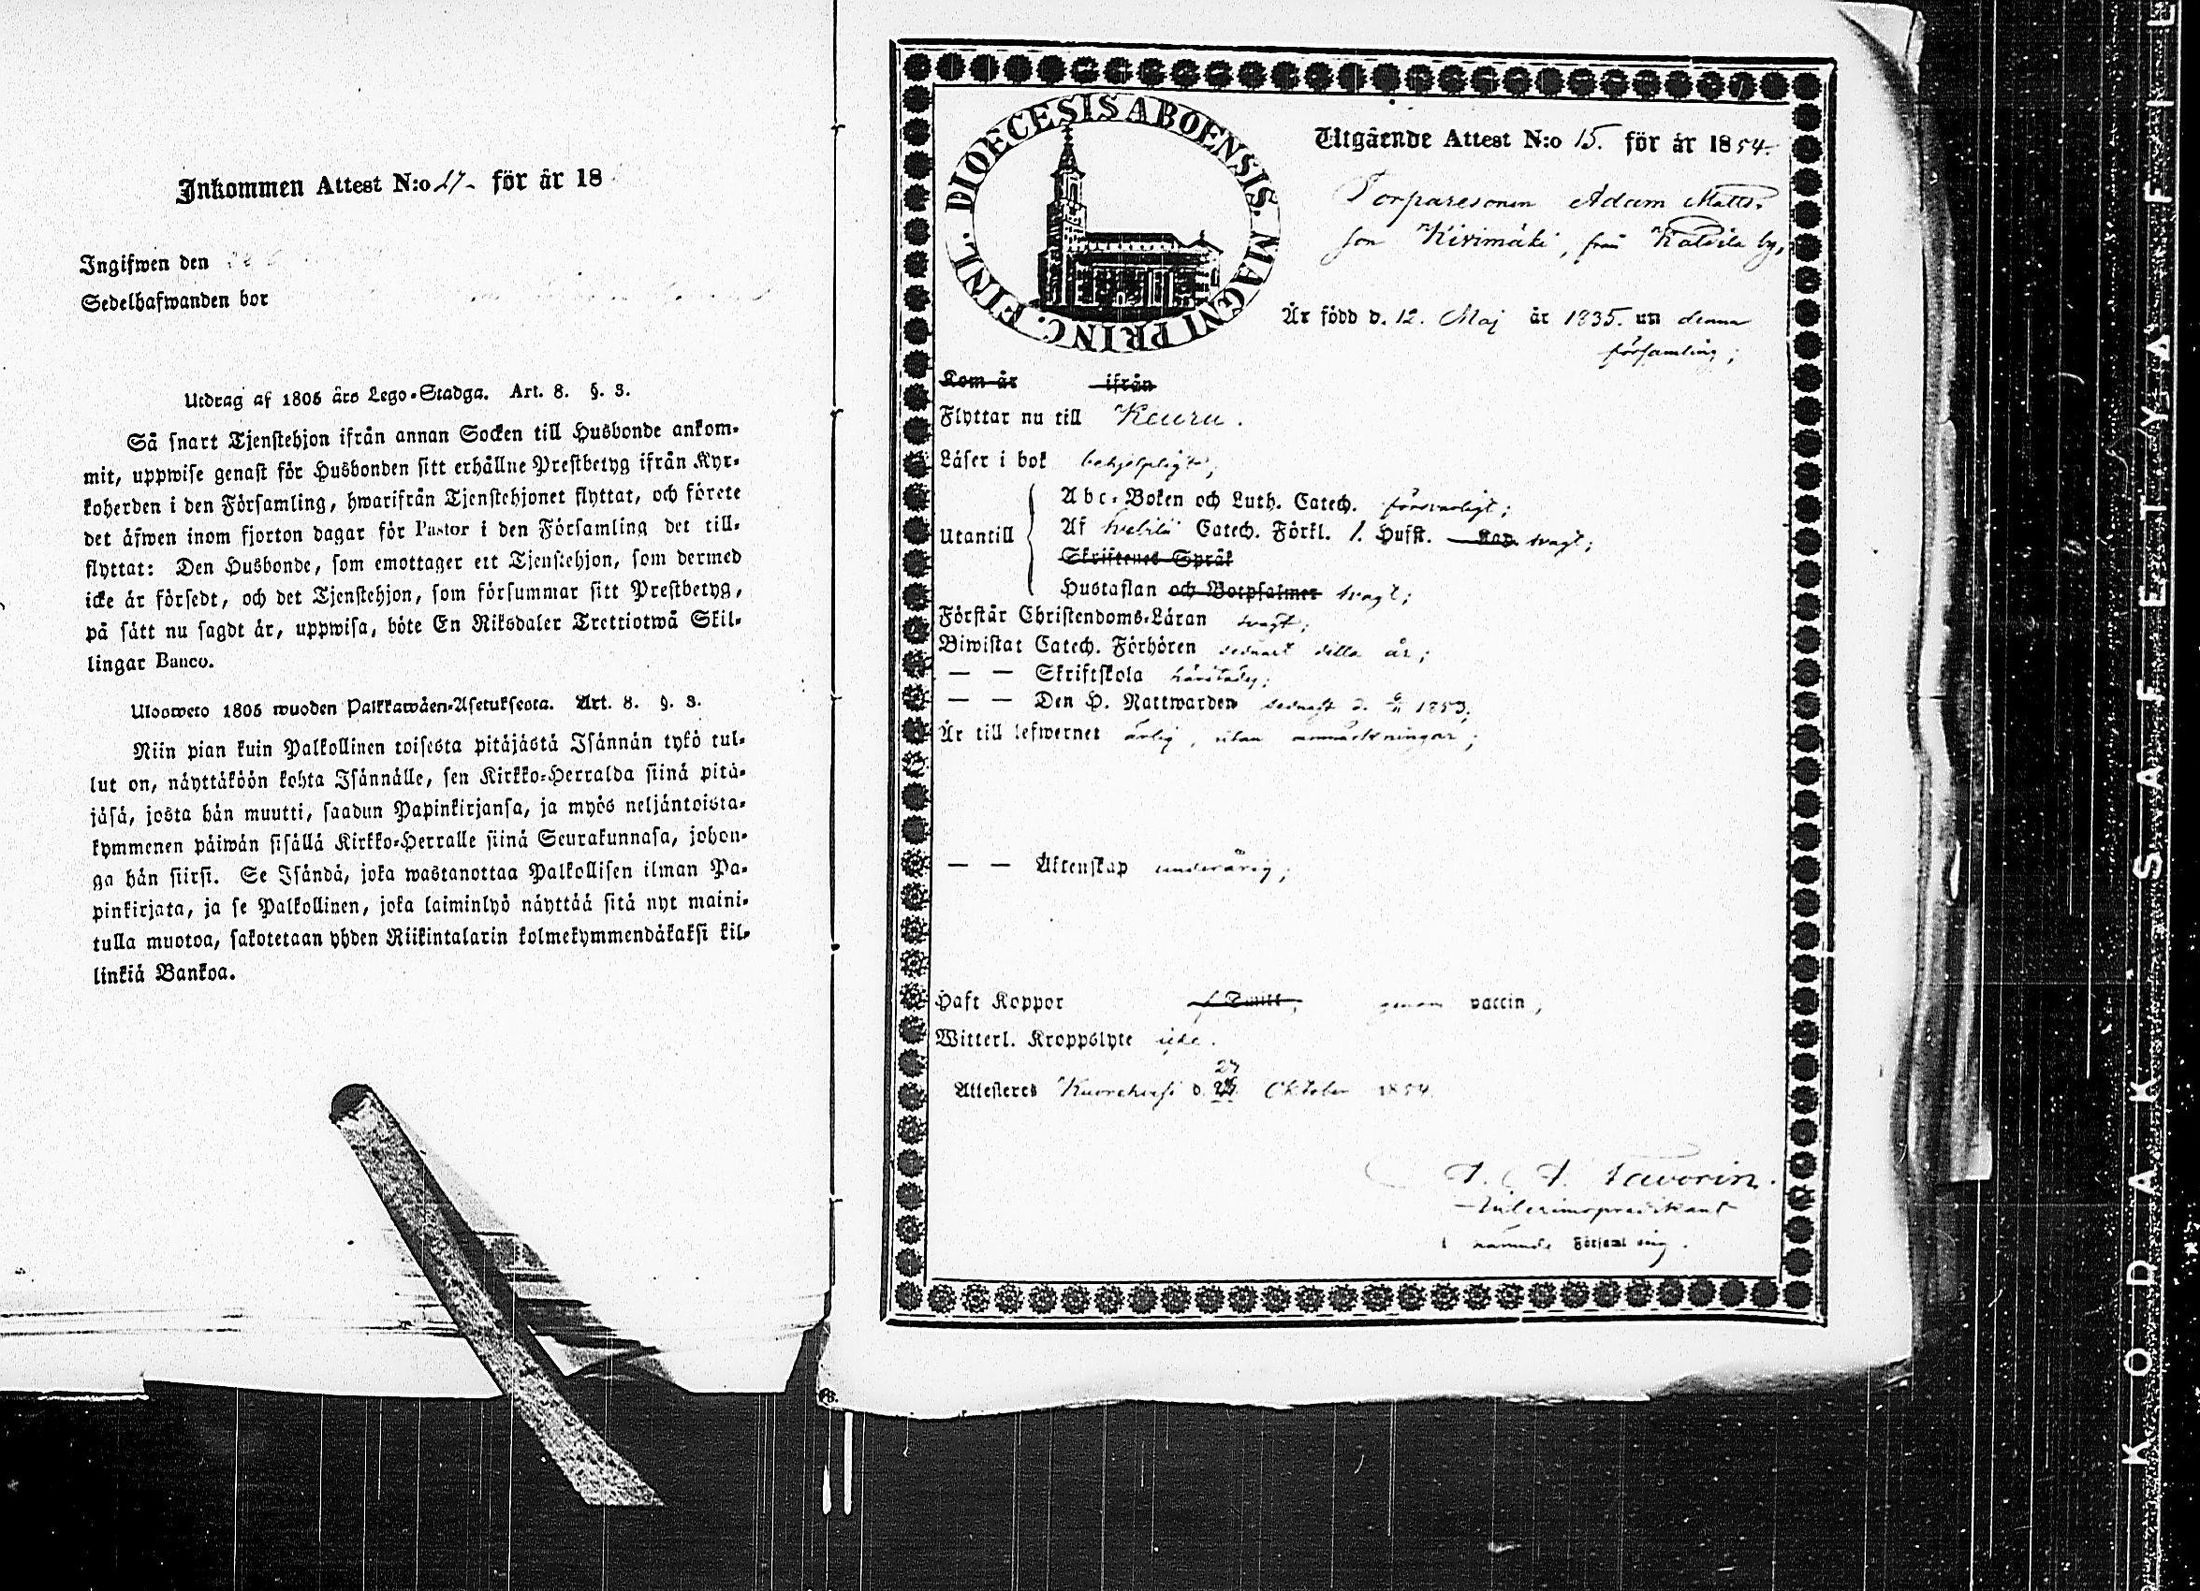 Inkommen Attest N:o 27. för år 18
Ingifwen den
Sedelhafwanden bor
Utdrag af 1805 års Lego-Stadga. Art. 8. §. 3.
Så snart Tjenstehjon ifrån annan Socken till Husbonde ankom-
mit, uppwise genast för Husbonden sitt erhållne Prestbetyg ifrån Kyr-
koherden i den Församling, hwarifrån Tjenstehjonet flyttat, och förete
det äfwen inom fjorton dagar för Pastor i den Församling det till-
flyttat: Den Husbonde, som emottager ett Tjenstehjon, som dermed
icke är försedt, och det Tjenstehjon, som försummar sitt Prestbetyg,
på sätt nu sagdt är, uppwisa, böte En Riksdaler Trettiotwå Skil-
lingar Banco.
Ulosweto 1805 wuoden Palkkawäen-Asetuksesta. Art. 8. §. 3.
Niin pian kuin Palkollinen toisesta pitäjästä Isännän tykö tul-
lut on, näyttäköön kohta Isännälle, sen Kirkko-Herralda siinä pitä-
jäsä, josta hän muutti, saadun Papinkirjansa, ja myös neljäntoista-
kymmenen päiwän sisällä Kirkko-Herralle siinä Seurakunnasa, johon-
ga hän siirsi. Se Isändä, joka wastanottaa Palkollisen ilman Pa-
pinkirjata, ja se Palkollinen, joka laiminlyö näyttää sitä nyt maini-
tulla muotoa, sakotetaan yhden Riikintalarin kolmekymmendäkaksi kil-
linkiä Bankoa.
DIOECESIS ABOENSIS. MAGNI PRINC. FINL.
Utgående Attest N:o 15. för år 1854.
Torparesonen Adam Matts-
son Kivimäki, från by,
Är född d. 12. Maj år 1835. uti denna
församling;
Kom år ifrån
Flyttar nu till Keuru.
Läser i bok behjelpligt;
Utantill
Abc-Boken och Luth. Catech. försvarligt;
Af Svebilii Catech. Förkl. 1. Hufst. Kap. svagt;
Skriftenes Språk
Hustaflan och Botpsalmer svagt;
Förstår Christendoms-Läran svagt;
Biwistat Catech. Förhören sednast detta år;
— — Skriftskola härstädes;
— — Den H. Nattwarden sednast d. 1853;
Är till lefwernet ärlig, utan anmärkningar;
— — Äktenskap underårig;
Haft Koppor genom vaccin,
Witterl. Kroppslyte icke.
Attesteres Kuorehvesi d. 27 Oktober 1854.
Favorin.
Interimspredikant
i nämnde Församling.
KODAK SAFETY FIL